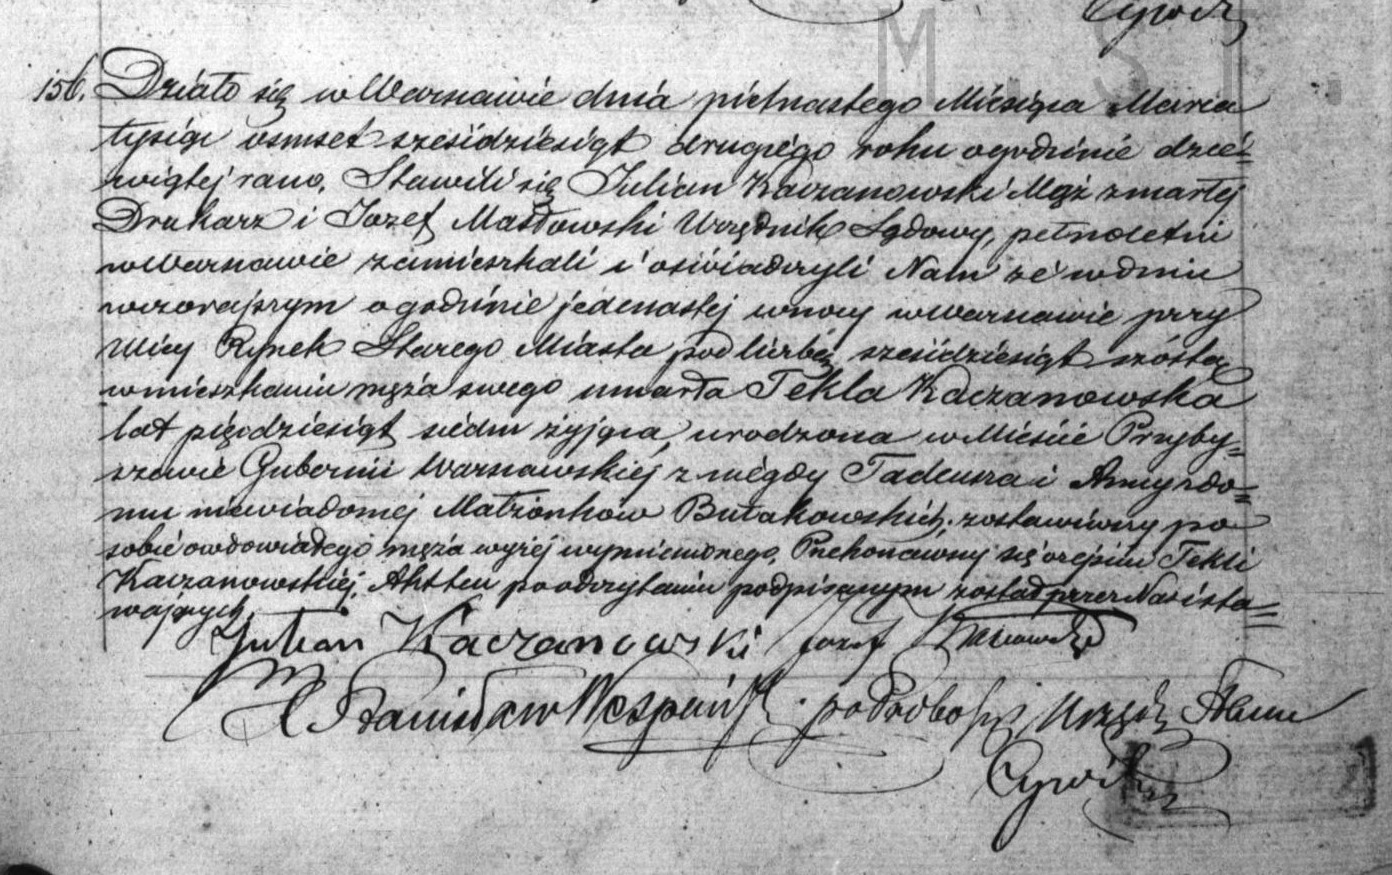 Cywiln
M. ST.
156. Działo się w Warszawie dnia piętnastego Miesiąca Marca
tysiąc osmset szesćdziesiąt drugiego roku o godzinie dzie=
wiątej rano. Stawili się Julian Kaczanowski Mąż zmarłej
Drukarz i Jozef Masłowski Urzędnik Sądowy, pełnoletni
w Warszawie zamieszkali i oświadczyli Nam że w dniu
wczorajszym o godzinie jedenastej w nocy w Warszawie przy
Ulicy Rynek Starego Miasta pod liczbą szesćdziesiąt szóstą
w mieszkaniu męża swego umarła Tekla Kaczanowska
lat pięćdziesiąt siedm żyjąca, urodzona w Mieście Przyby=
szewie Gubernii Warszawskiej z niegdy Tadeusza i Anny z do=
mu niewiadomej Małżonków Bułakowskich; zostawiwszy po
sobie owdowiałego męża wyżej wymienionego. Przekonawszy się o zejściu Tekli
Kaczanowskiej, Akt ten po odczytaniu podpisanym został przez Nas i sta=
wających
Julian Kaczanowski Jozef Masłowski
X Stanisław po Probosz Urzędn Stanu
Cywiln